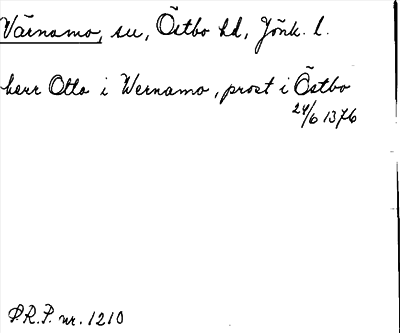 Värnamo, sn, Östbo hd, Jönk. l.
herr Otto i Wernamo, prost i Östbo
24/6 1376
S.R.P. nr. 1210